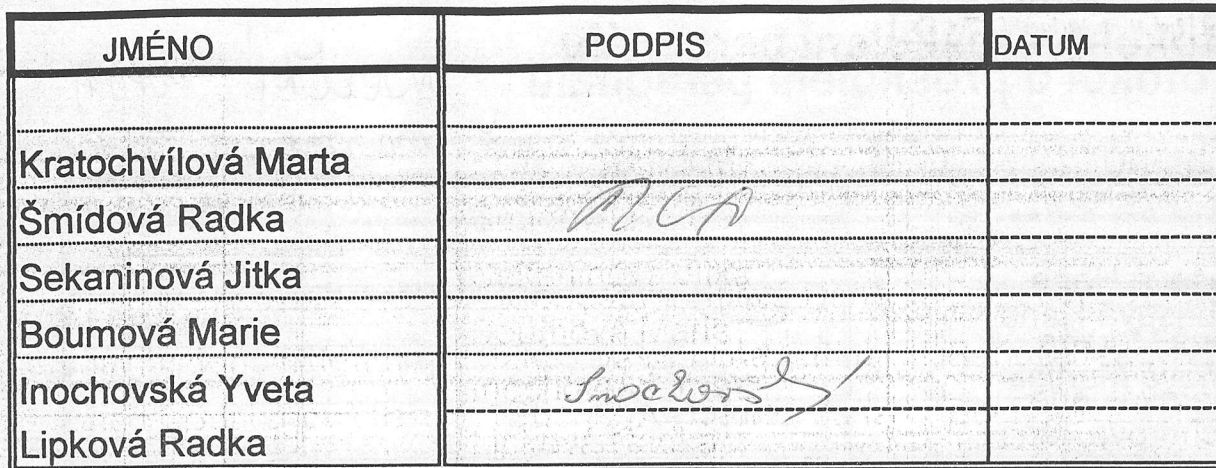 JMÉNO PODPIS DATUM
Kratochvílová Marta
Šmídová Radka
Sekaninová Jitka
Boumová Marie
Inochovská Yveta Inochovská
Lipková Radka